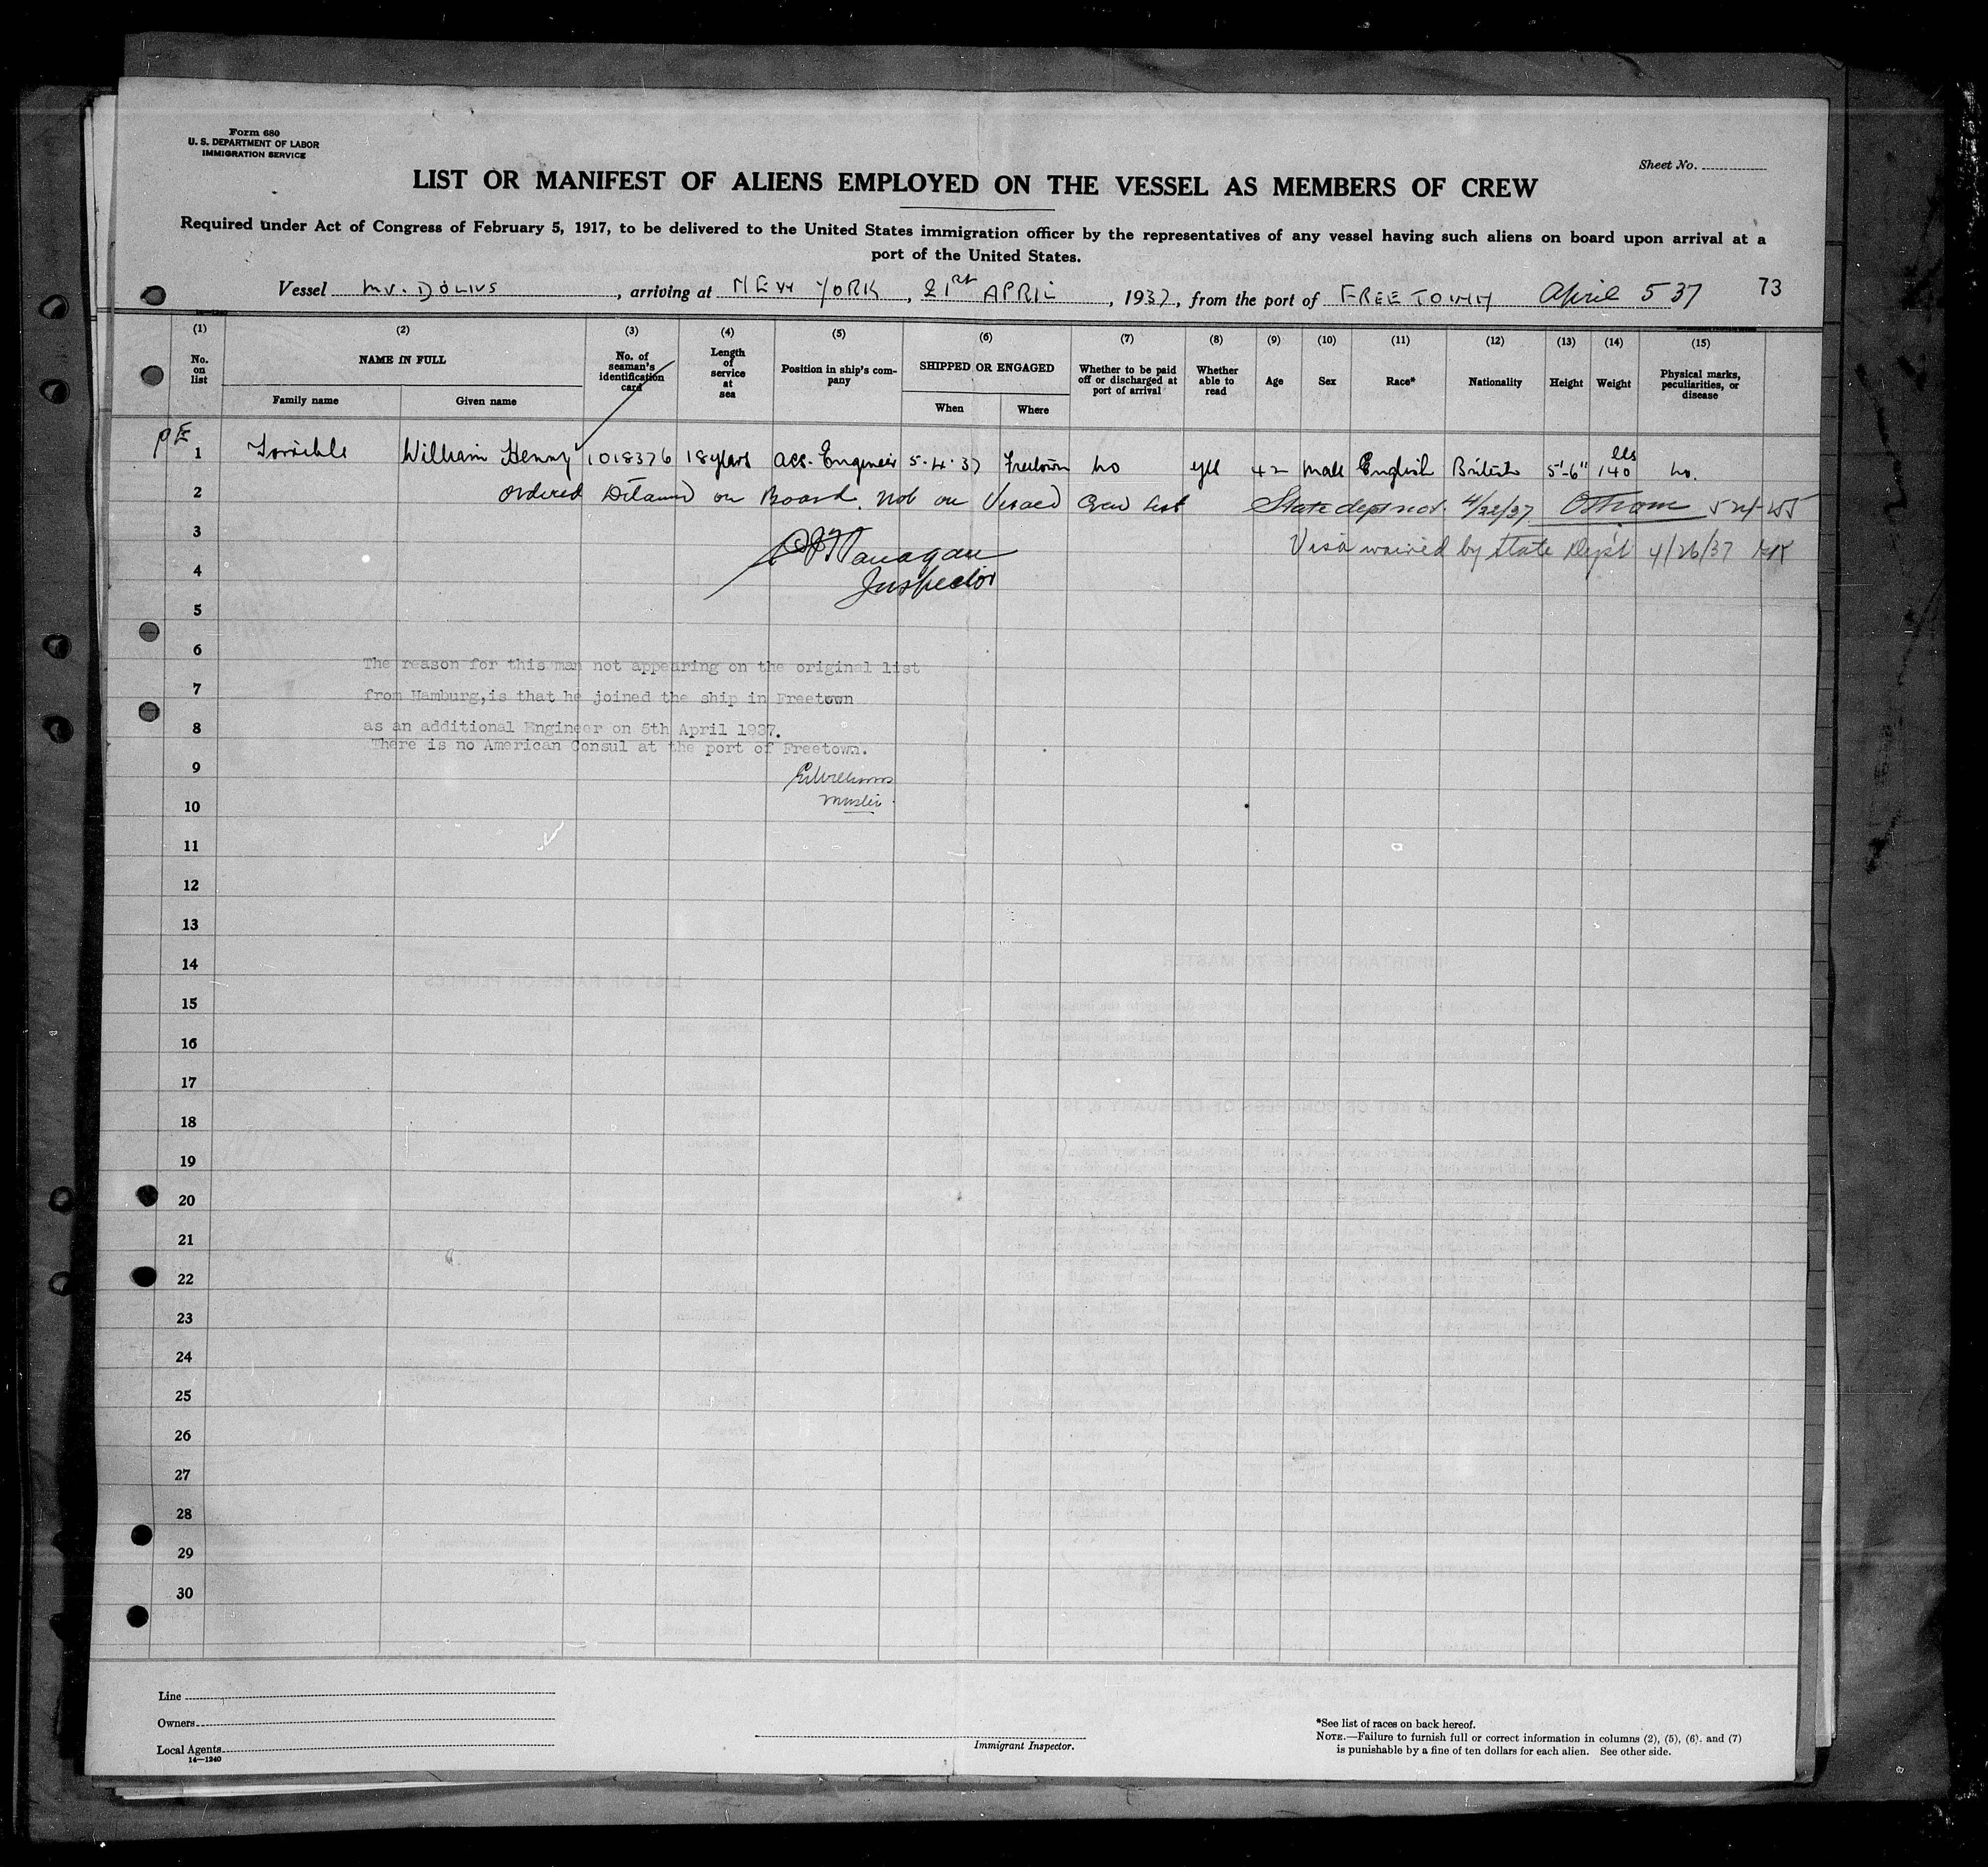 Form 680
U. S. DEPARTMENT OF LABOR
IMMIGRATION SERVICE
Sheet No.
LIST OR MANIFEST OF ALIENS EMPLOYED ON THE VESSEL AS MEMBERS OF CREW
Required under Act of Congress of February 5, 1917, to be delivered to the United States immigration officer by the representatives of any vessel having such aliens on board upon arrival at a
port of the United States.
Vessel MV. DOLIUS, arriving at NEW YORK, 21st APRIL, 1937, from the port of FREETOWN April 5 37
73
(1) (2) (3) (4) (5) (6) (7) (8) (9) (10) (11) (12) (13) (14) (15)
No. on list
NAME IN FULL
Family name
Given name
No. of seaman's identification card
Length of service at sea
Position in ship's company
SHIPPED OR ENGAGED
When
Where
Whether to be paid off or discharged at port of arrival
Whether able to read
Age
Sex
Race*
Nationality
Height
Weight
Physical marks, peculiarities, or disease
1 William Henry 1018376 18 years Engineer 5.4.37 Freetown no yes 42 male English British 5'-6" 140 lbs no.
2 Ordered Detained on Board. Not on Visaed Crew List State dept not. 4/22/37
3 Visa waived by State Dep't 4/26/37
4 Inspector
5
6
The reason for this man not appearing on the original list
7
from Hamburg,is that he joined the ship in Freetown
8
as an additional Engineer on 5th April 1937.
There is no American Consul at the port of Freetown.
9
Williams
10 Master.
11
12
13
14
15
16
17
18
19
20
21
22
23
24
25
26
27
28
29
30
Line
Owners
Local Agents
14—1240
Immigrant Inspector.
*See list of races on back hereof.
NOTE.—Failure to furnish full or correct information in columns (2), (5), (6), and (7)
is punishable by a fine of ten dollars for each alien. See other side.